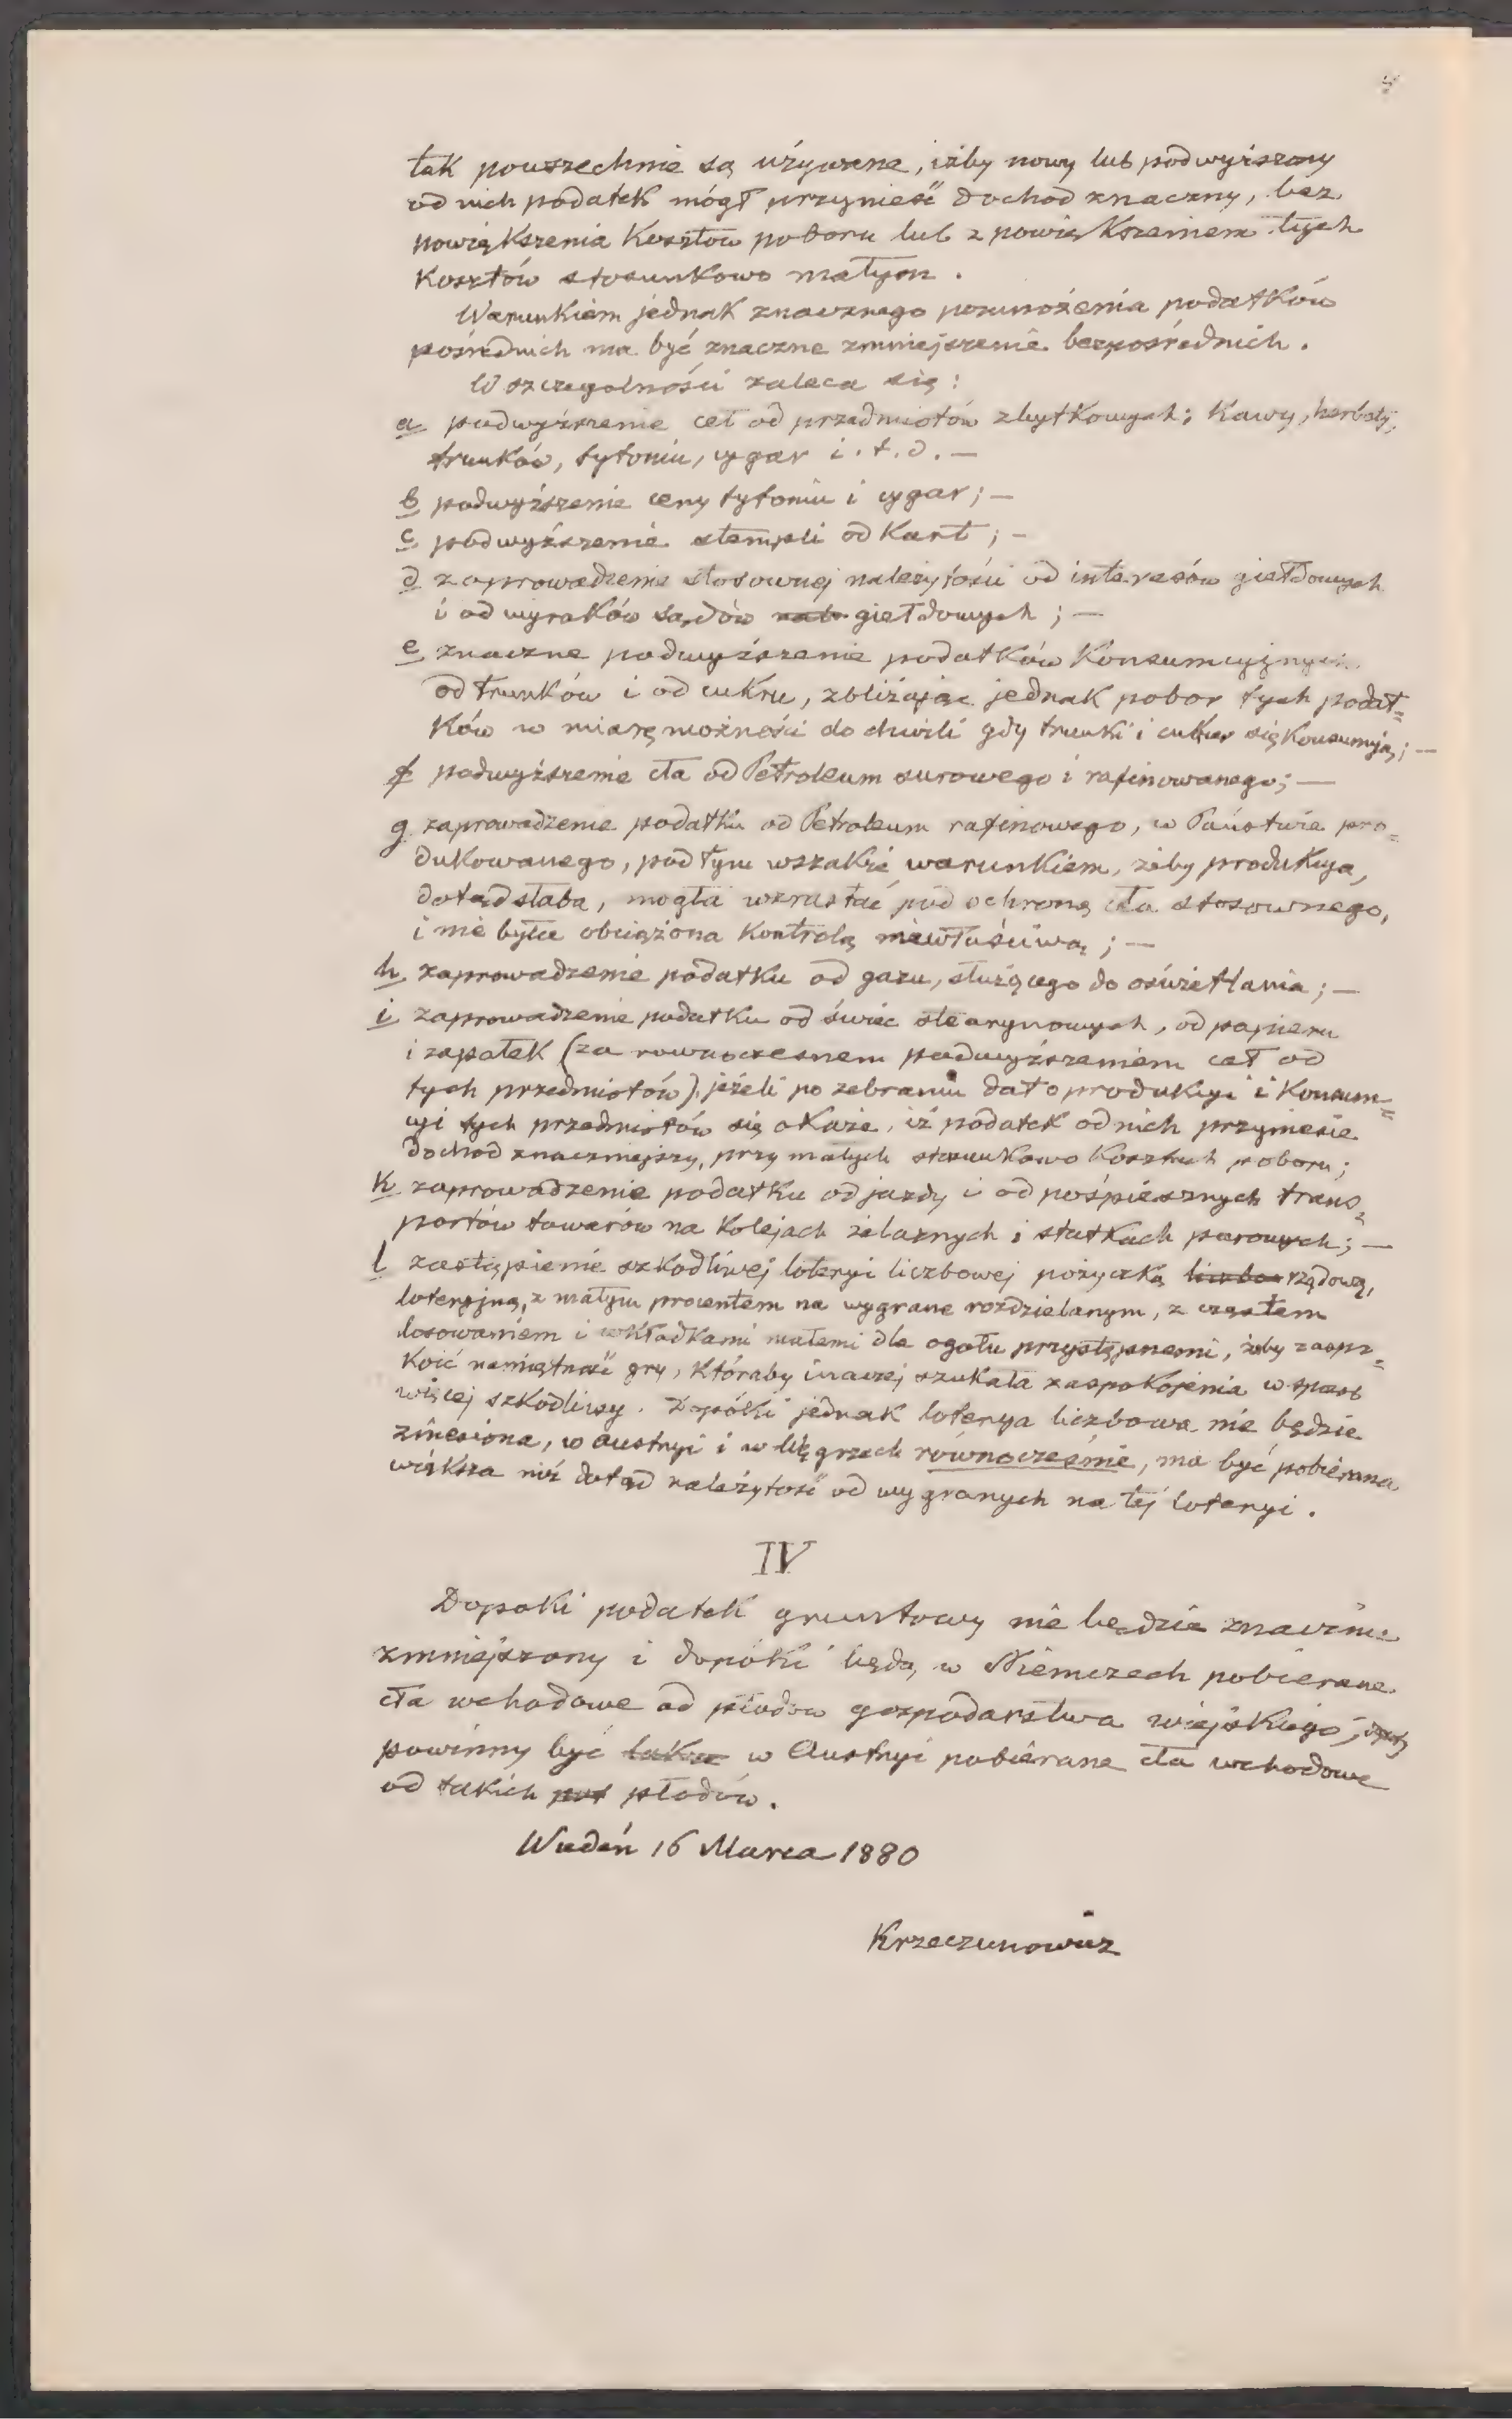 tak powszechnie są używane, iżby nowy lub podwyższony
od nich podatek mógł przynieść dochod znaczny, bez
powiększenia Kosztów poboru lub z powiększeniem tych
Kosztów stosunkowo małym.
Warunkiem jednak znacznego pomnożenia podatków
pośrednich ma być znaczne zmniejszenie bezpośrednich.
W szczegolności zaleca się:
a podwyższenie ceł od przedmiotów zbytkowych; Kawy, herbaty,
trunków, tytoniu, cygar i. t. d. —
b podwyższenie ceny tytoniu i cygar; —
c podwyższenie stempli od Kart; —
d zaprowadzenie stosownej należytości od interesów giełdowych
i od wyroków sądów giełdowych; —
e znaczne podwyższenie podatków Konsumcyjnych
od trunków i od cukru, zbliżając jednak pobor tych podat=
ków w miarę możności do chwili gdy trunki i cukier się Konsumują; —
f podwyższenie cła od Petroleum surowego i rafinowanego; —
g zaprowadzenie podatku od Petroleum rafinowego, w Państwie pro=
dukowanego, pod tym wszakże warunkiem, żeby produkcya,
dotąd słaba, mogła wzrastać pod ochroną cła stosownego,
i nie była obciążona Kontrolą niewłaściwą; —
h zaprowadzenie podatku od gazu, służącego do oświetlania; —
i zaprowadzenie podatku od świec stearynowych, od papieru
i zapałek (za rownoczesnem podwyższeniem ceł od
tych przedmiotów), jeżeli po zebraniu dat o produkcyi i Konsum=
cyi tych przedmiotów się oKaże, iż podatek od nich przyniesie
dochod znaczniejszy, przy małych stosunkowo Kosztach poboru;
K zaprowadzenie podatku od jazdy i od pośpiesznych trans=
portów towarów na Kolejach żelaznych i statkach parowych; —
l zastąpienie szkodliwej loteryi liczbowej pożyczką liczbo rządową,
loteryjną, z małym procentem na wygrane rozdzielanym, z częstem
losowaniem i wkładkami małemi dla ogołu przystępnemi, żeby zaspo=
Koić namiętność gry, Któraby inaczej szukała zaspokojenia w sposób
więcej szkodliwy. Dopóki jednak loterya liczbowa nie będzie
zniesiona, w Austryi i w Węgrzech równocześnie, ma być pobierana
większa niż dotąd należytość od wygranych na tej loteryi.
IV
Dopoki podatek gruntowy nie będzie znacznie
zmniejszony i dopóki będą w Niemczech pobierane
cła wchodowe od płodow gospodarstwa wiejskiego,
powinny być także w Austryi pobierane cła wchodowe
od takich płodów.
Wiedeń 16 Marca 1880
Krzeczunowicz